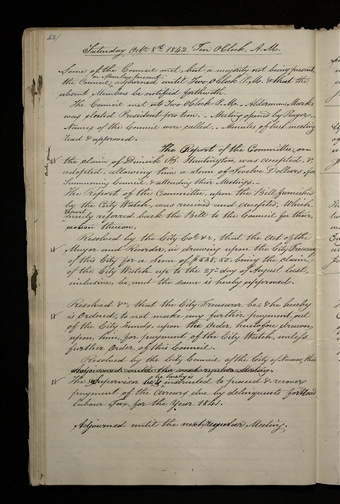 Saturday Octr 8th 1842. Ten OClock A.M.
Some of the Council met, but a majority not being present
the Council adjourned until Two OClock P.M. & that the
absent Members be notified forthwith.
The Council met at Two OClock P.M. Alderman Marks
was elected President pro tem. Meeting opened by Prayer.
Names of the Council were called. Minutes of last meeting
read & approved.
The Report of the Committee on
the claim of Dimick B. Huntington, was accepted, &
adopted, allowing him a sum of Twelve Dollars, for
Summoning Council, & attending their Meetings.
The report of the Committee, upon the Bill, furnished
by the City Watch, was received and accepted, which
merely referred back the Bill to the Council for their
action thereon.
Resolved by the City Col &c, that the act of the
Mayor and Recorder, in drawing upon the City Treasury
of this City for a Sum of $538.50. being the claim
of the City Watch up to the 27th day of August last,
inclusive, be, and the same is hereby approved.
Resolved &c that the City Treasurer be, & he hereby
is Ordered, to not make any further payment, out
of the City funds, upon the Order, heretofore drawn
upon him, for payment of the City Watch, unless
further Order of this Council.
Resolved by the City Council of the City of Nauvoo, that
the Supervisor be & he hereby is instructed to proceed & recover
payment of the arrears due by delinquents for
Labour Tax for the Year 1841.
Adjourned until the next regular Meeting.